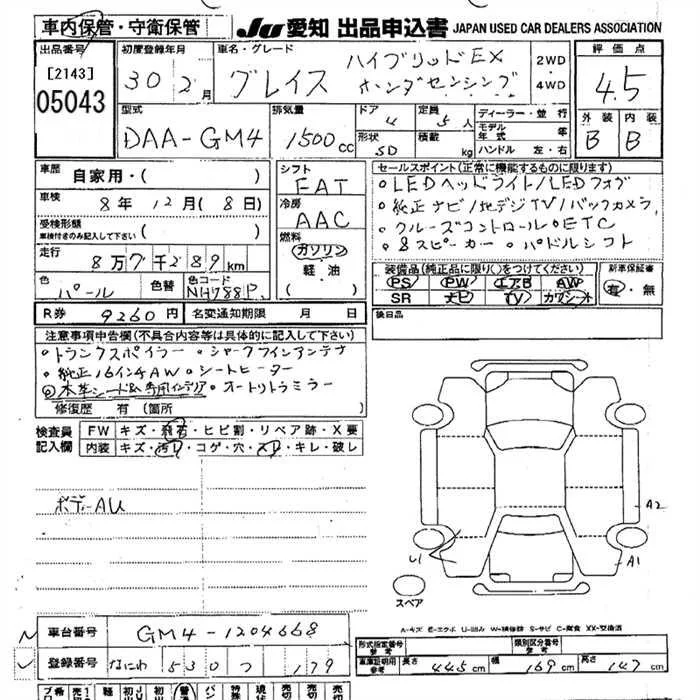 車内保管・守衛保管
JU 愛知 出品申込書 JAPAN USED CAR DEALERS ASSOCIATION
出品番号 初度登録年月 車名・グレード 評価点
[2143]
05043
30 2月
グレイス ハイブリッドEX ホンダセンシング
2WD・4WD
4.5
型式 排気量 ドア 定員 ディーラー・並行 外装 内装
DAA-GM4 1500cc 4 5人 モデル年式 年 B B
形状 5D 積載 kg ハンドル 左・右
車歴 自家用・( )
シフト FAT
セールスポイント(正常に機能するものに限ります)
車検 8年 12月(8日)
冷房 AAC
・LEDヘッドライト/LEDフォグ
・純正ナビ/地デジTV/バックカメラ
・クルーズコントロール・ETC
・8スピーカー・パドルシフト
受検形態 車検付きのみ記入して下さい ( )
燃料 ガソリン・軽・油( )
走行 8万7千289km
装備品(純正品に限り○をつけてください) 新車保証書
PS PW エアB AW 有・無
SR ナビ TV カワシート
色 パール 色替 色コード NH788P
R券 9260円 名変通知期限 月 日
後日品
注意事項申告欄(不具合内容等は具体的に記入して下さい)
・トランクスポイラー・シャークフィンアンテナ
・純正16インチAW・シートヒーター
・本革シート&専用インテリア・オートリトラミラー
修復歴 有(箇所 )
検査員記入欄 FW キズ・飛石・ヒビ割・リペア跡・X要
内装 キズ・汚れ・コゲ・穴・スレ・キレ・破レ
ボデーAU
A2
U1
A1
スペア
A-キズ E-エクボ U-凹み W-補修跡 S-サビ C-腐食 XX-交換済
車台番号 GM4-1204668
形式指定番号 参考 類別区分番号 参考
登録番号 なにわ 530 つ 179
車庫証明用 参考 長さ 445cm 幅 169cm 高さ 147cm